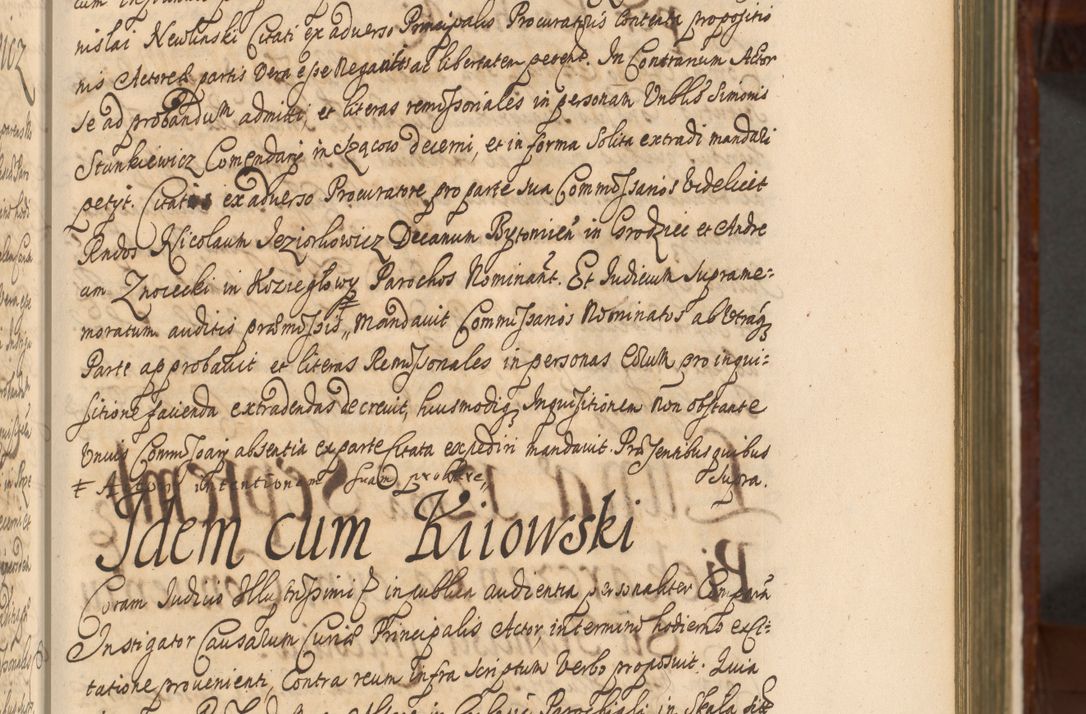 nislai Newlinski Citati ex adverso Principalis Procuratoris contenta propositio
nis Actoreæ partis Vera esse Negantis ac libertatem petent. In Contrarium Actor
se ad probandum admitti, et literas remissoriales in personam Vnblis Simonis
Stunkiewicz Comendarij in decerni, et in forma solita extradi mandari
petijt. Citatis ex adverso Procuratore pro parte sua Commissarios videlicet
Rndos Nicolaum Jeziorkowicz Decanum Bytomien in Grodziec et Andre
am Znoiecki in Koziegłowy Parochos Nominant. Et Iudicium suprame=
moratum auditis præmissis ǂ Mandavit Commissarios Nominatos ab Utraq3
Parte approbavit et literas Remissionales in personas Eorum pro inqui=
sitione facienda extradendas decrevit, huiusmodiq3 Inquisitionem non obstante
Vnius Commissarij absentia ex parte Citata expediri mandavit. Præsentibus quibus
ǂ intentionem suam probare, supra.
Idem cum Kiiowski
Coram Iudicio Illustrissimi in publica audientia personaliter Comparuit
Instigator Causarum Curiæ Principalis Actor, in termino hodierno ex Ci=
tatione provenienti Contra reum infra scriptum Verbo proposuit. Quia
in Skala